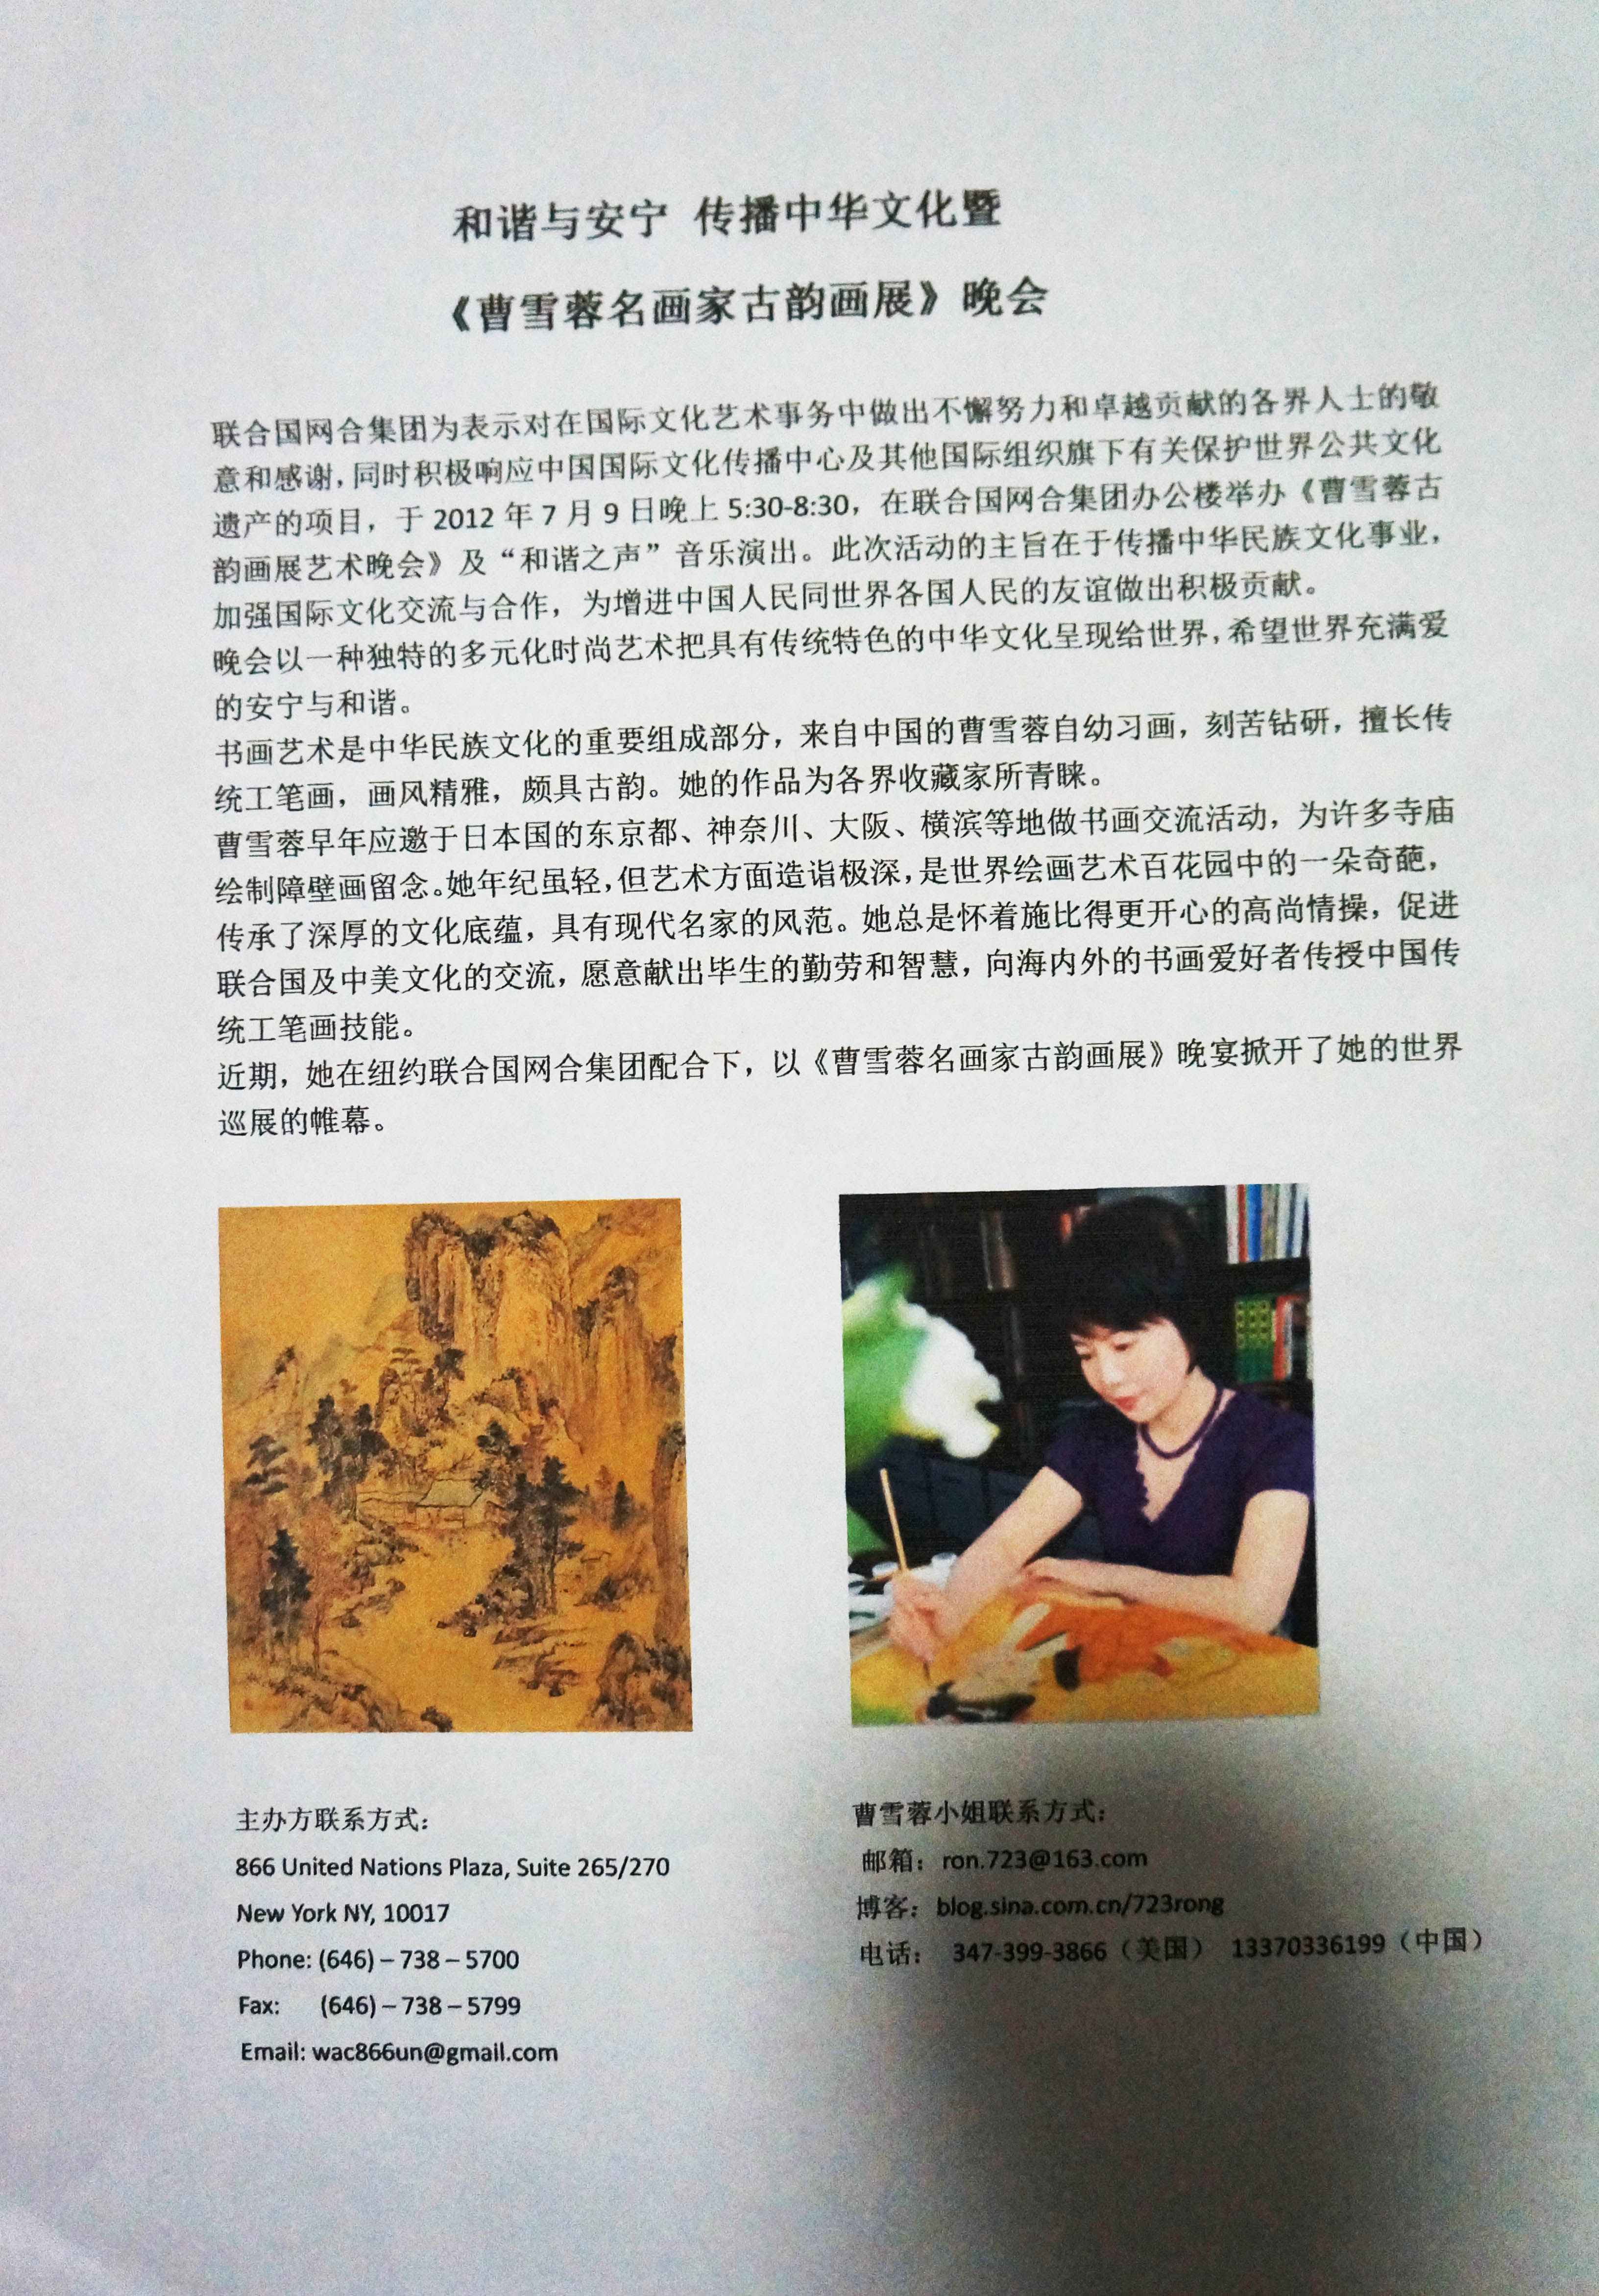 和谐与安宁 传播中华文化暨
《曹雪蓉名画家古韵画展》晚会
联合国网合集团为表示对在国际文化艺术事务中做出不懈努力和卓越贡献的各界人士的敬
意和感谢,同时积极响应中国国际文化传播中心及其他国际组织旗下有关保护世界公共文化
遗产的项目，于 2012 年 7 月 9 日晚上 5:30-8:30，在联合国网合集团办公楼举办《曹雪蓉古
韵画展艺术晚会》及“和谐之声”音乐演出。此次活动的主旨在于传播中华民族文化事业，
加强国际文化交流与合作，为增进中国人民同世界各国人民的友谊做出积极贡献。
晚会以一种独特的多元化时尚艺术把具有传统特色的中华文化呈现给世界,希望世界充满爱
的安宁与和谐。
书画艺术是中华民族文化的重要组成部分，来自中国的曹雪蓉自幼习画，刻苦钻研，擅长传
统工笔画，画风精雅，颇具古韵。她的作品为各界收藏家所青睐。
曹雪蓉早年应邀于日本国的东京都、神奈川、大阪、横滨等地做书画交流活动，为许多寺庙
绘制障壁画留念。她年纪虽轻,但艺术方面造诣极深,是世界绘画艺术百花园中的一朵奇葩，
传承了深厚的文化底蕴，具有现代名家的风范。她总是怀着施比得更开心的高尚情操，促进
联合国及中美文化的交流，愿意献出毕生的勤劳和智慧，向海内外的书画爱好者传授中国传
统工笔画技能。
近期，她在纽约联合国网合集团配合下，以《曹雪蓉名画家古韵画展》晚宴掀开了她的世界
巡展的帷幕。
主办方联系方式：
866 United Nations Plaza, Suite 265/270
New York NY, 10017
Phone: (646) – 738 – 5700
Fax: (646) – 738 – 5799
Email: wac866un@gmail.com
曹雪蓉小姐联系方式：
邮箱：ron.723@163.com
博客：blog.sina.com.cn/723rong
电话： 347-399-3866（美国） 13370336199（中国）